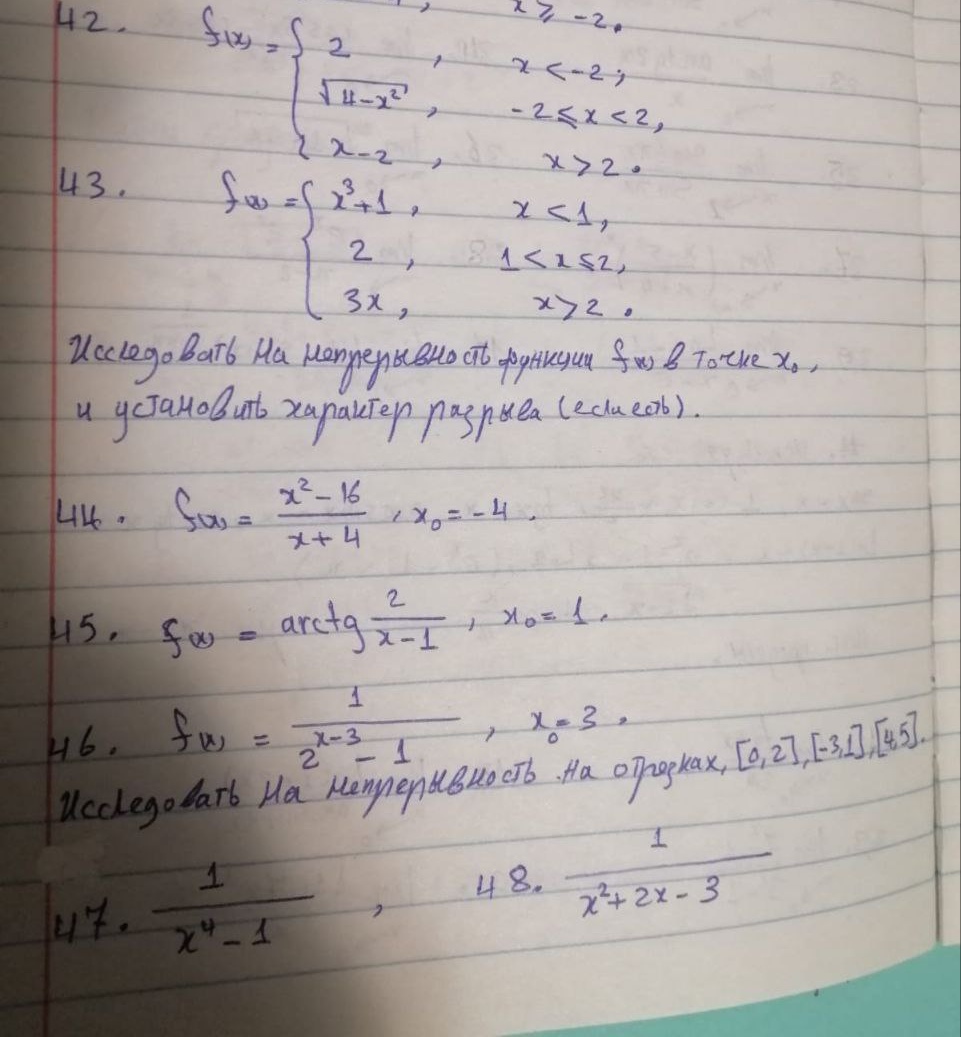 x ⩾ -2.
42. f(x) = { 2 , x < -2;
√(4-x²) , -2 ⩽ x < 2,
x-2 , x > 2.
43. f(x) = { x³+1 , x < 1,
2 , 1 < x ⩽ 2,
3x , x > 2.
Исследовать на непрерывность функции f(x) в точке x₀,
и установить характер разрыва (если есть).
44. f(x) = (x²-16)/(x+4) , x₀ = -4.
45. f(x) = arctg 2/(x-1) , x₀ = 1.
46. f(x) = 1/(2^(x-3) - 1) , x₀ = 3.
Исследовать на непрерывность на отрезках, [0,2], [-3,1], [4,5].
47. 1/(x⁴-1) , 48. 1/(x²+2x-3)